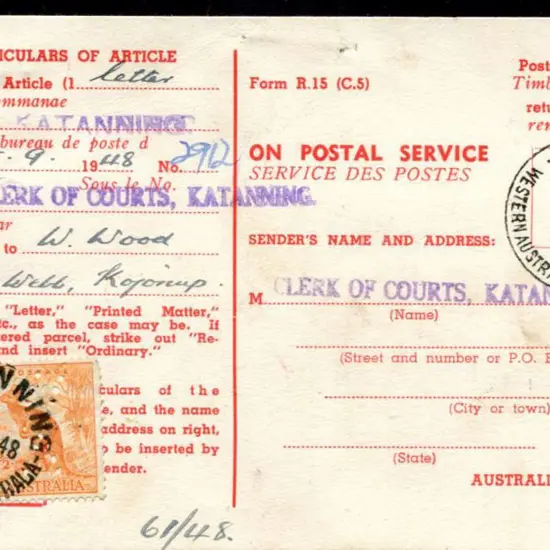 ICULARS OF ARTICLE
Article (1 letter
ommanae
KATANNING
bureau de poste d
9. 1948 No. 2912
Sous le No.
LERK OF COURTS, KATANNING.
ar
to W. Wood
Webb, Kojonup
"Letter," "Printed Matter,"
tc., as the case may be. If
ered parcel, strike out "Re-
and insert "Ordinary."
culars of the
e, and the name
address on right,
o be inserted by
ender.
NNING
48
RALIA
POSTAGE
AUSTRALIA
61/48.
Form R.15 (C.5)
ON POSTAL SERVICE
SERVICE DES POSTES
SENDER'S NAME AND ADDRESS:
M CLERK OF COURTS, KATAN
(Name)
(Street and number or P.O. B
(City or town)
(State)
AUSTRA
Post
Timb
retu
ren
WESTERN AUSTR